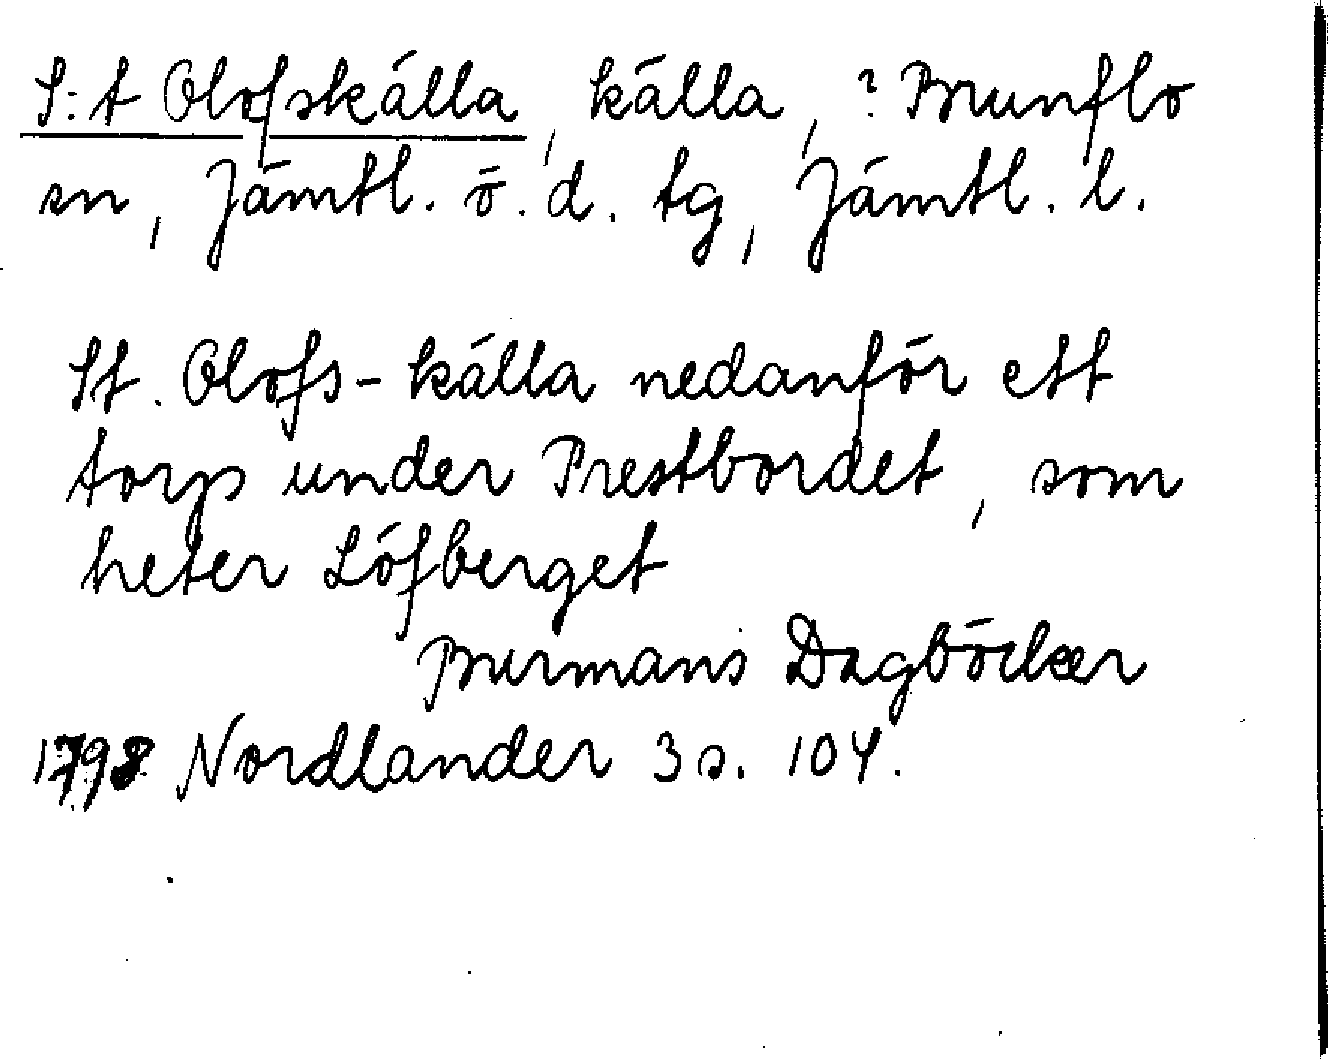 S:t Olofskälla, källa, ? Brunflo
sn, Jämtl. ö. d. tg, Jämtl. l.
St. Olofs-källa nedanför ett
torp under Prestbordet, som
heter Löfberget
Burmans Dagböcker
1798 Nordlander 3 s. 104.